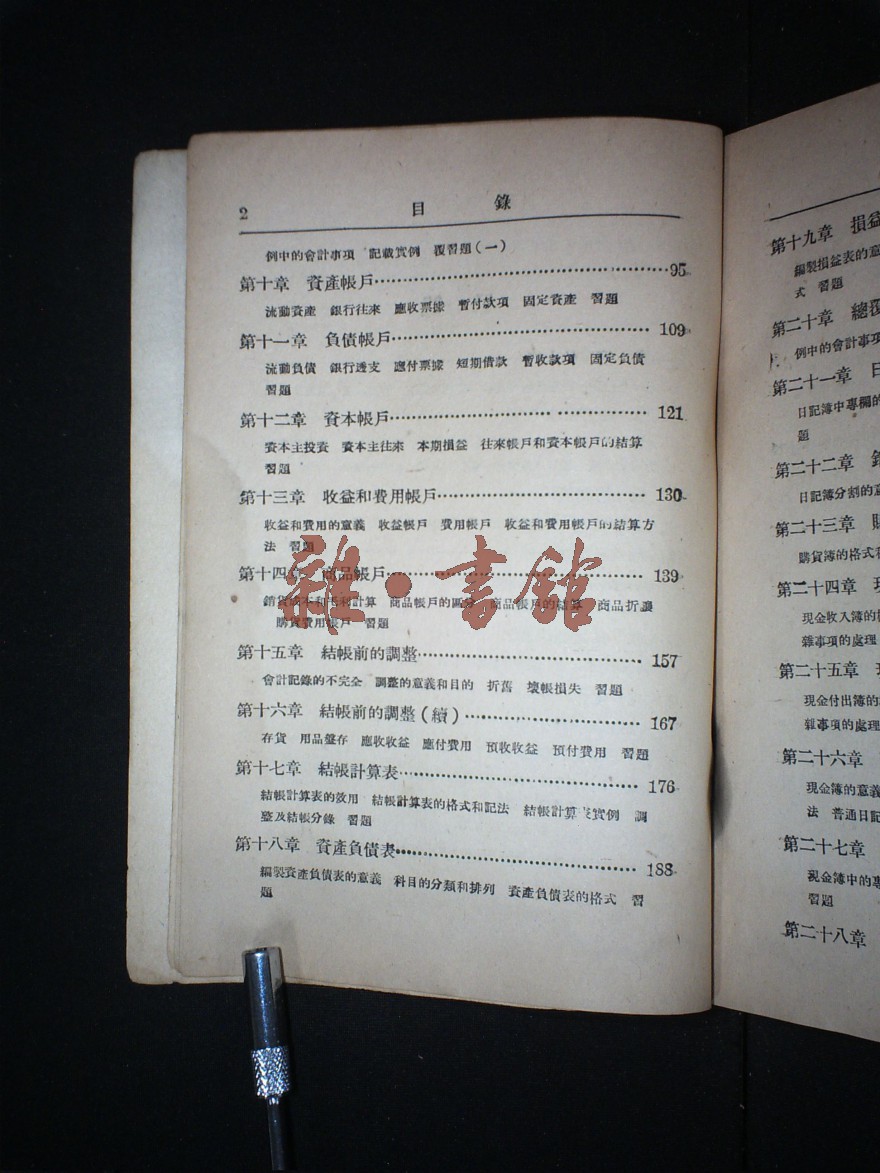 2 目 錄
例中的會計事項 記載實例 覆習題(一)
第十章 資產帳戶 95
流動資產 銀行往來 應收票據 暫付款項 固定資產 習題
第十一章 負債帳戶 109
流動負債 銀行透支 應付票據 短期借款 暫收款項 固定負債
習題
第十二章 資本帳戶 121
資本主投資 資本主往來 本期損益 往來帳戶和資本帳戶的結算
習題
第十三章 收益和費用帳戶 130
收益和費用的意義 收益帳戶 費用帳戶 收益和費用帳戶的結算方
法 習題
第十四章 商品帳戶 139
銷貨成本和毛利計算 商品帳戶的區分 商品帳戶的結算 商品折讓
購貨費用帳戶 習題
第十五章 結帳前的調整 157
會計記錄的不完全 調整的意義和目的 折舊 壞帳損失 習題
第十六章 結帳前的調整(續) 167
存貨 用品盤存 應收收益 應付費用 預收收益 預付費用 習題
第十七章 結帳計算表 176
結帳計算表的效用 結帳計算表的格式和記法 結帳計算表實例 調
整及結帳分錄 習題
第十八章 資產負債表 188
編製資產負債表的意義 科目的分類和排列 資產負債表的格式 習
題
雜·書館
第十九章 損益
編製損益表的意
式 習題
第二十章 總覆
例中的會計事項
第二十一章 日
日記簿中專欄的
題
第二十二章
日記簿分割的意
第二十三章 購
購貨簿的格式和
第二十四章 現
現金收入簿的
雜事項的處理
第二十五章 現
現金付出簿的
雜事項的處理
第二十六章
現金簿的意義
法 普通日記
第二十七章
現金簿中的專
習題
第二十八章